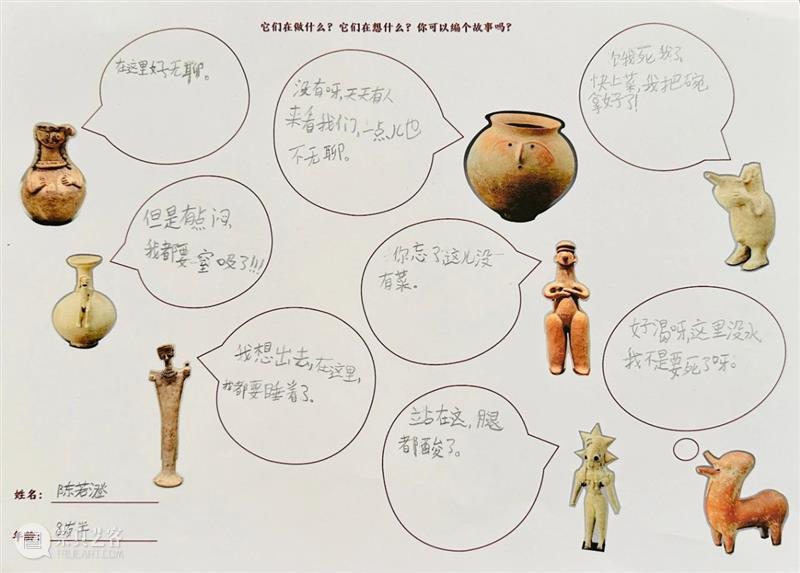 它们在做什么？它们在想什么？你可以编个故事吗？
在这里好无聊。
没有呀，天天有人
来看我们，一点儿也
不无聊。
饿死我了，
快上菜，我把碗
拿好了！
但是有点闷，
我都要窒吸了!!!
你忘了这儿没
有菜。
我想出去，在这里，
我都要睡着了。
好渴呀，这里没水，
我不是要死了呀。
站在这，腿
都酸了。
姓名：陈若澄
年龄：8岁半
TRUEART.COM